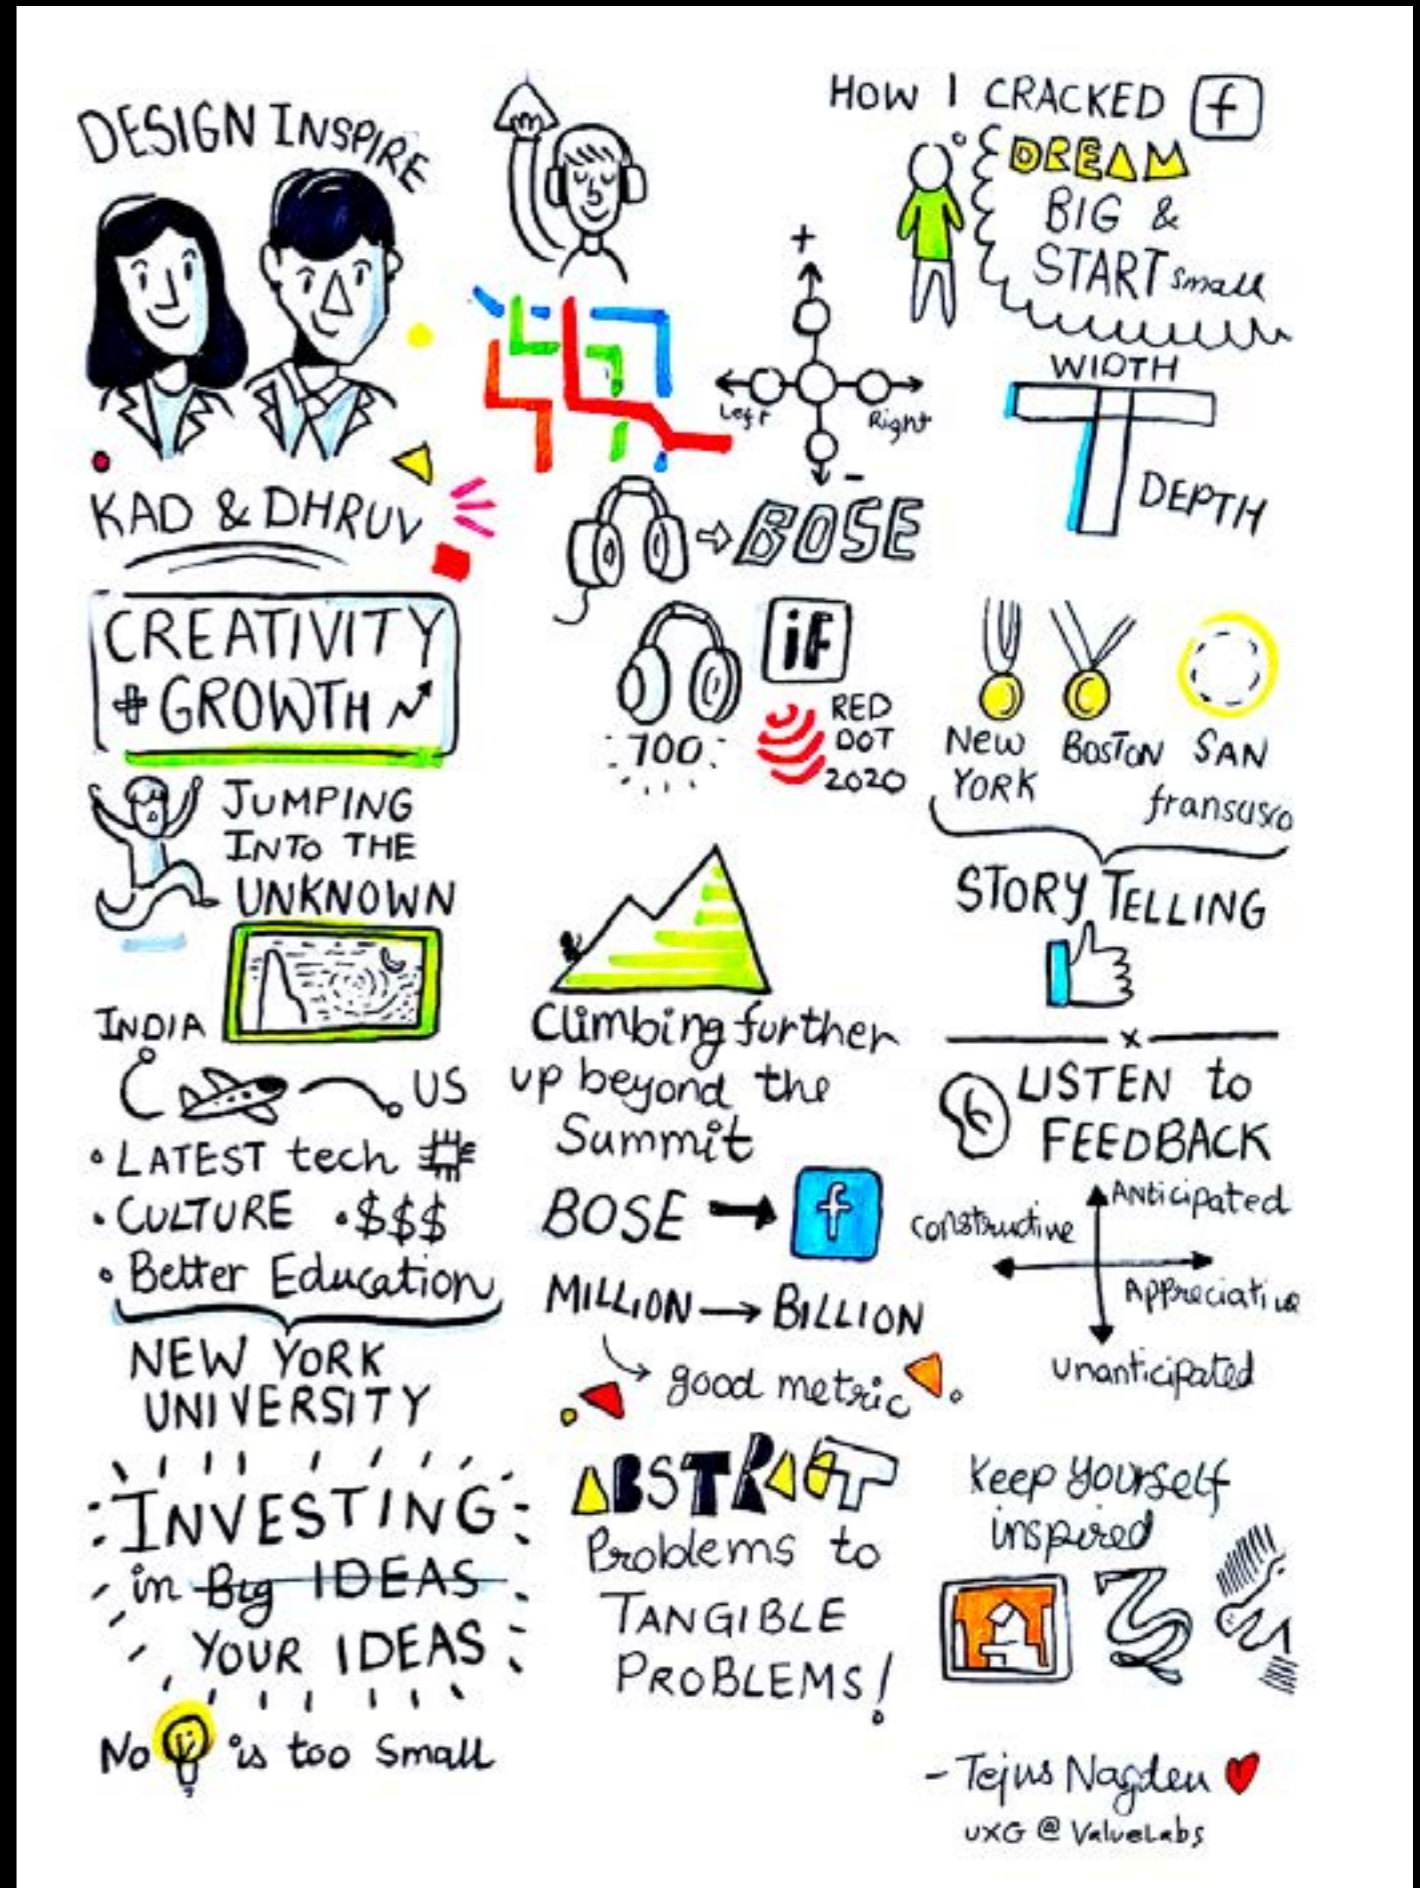 DESIGN INSPIRE
KAD & DHRUV
CREATIVITY
+ GROWTH
JUMPING
INTO THE
UNKNOWN
INDIA
US
• LATEST tech
• CULTURE • $$$
• Better Education
NEW YORK
UNIVERSITY
INVESTING
in Big IDEAS
YOUR IDEAS
No is too Small
+
Left
Right
-
BOSE
iF
700
RED
DOT
2020
Climbing further
up beyond the
Summit
BOSE → f
MILLION → BILLION
good metric
ABSTRACT
Problems to
TANGIBLE
PROBLEMS!
HOW I CRACKED f
DREAM
BIG &
START Small
WIDTH
DEPTH
New
YORK
BOSTON
SAN
fransusco
STORY TELLING
x
LISTEN to
FEEDBACK
Anticipated
constructive
Appreciative
unanticipated
Keep yourself
inspired
- Tejus Nagdeu
UXG @ ValueLabs